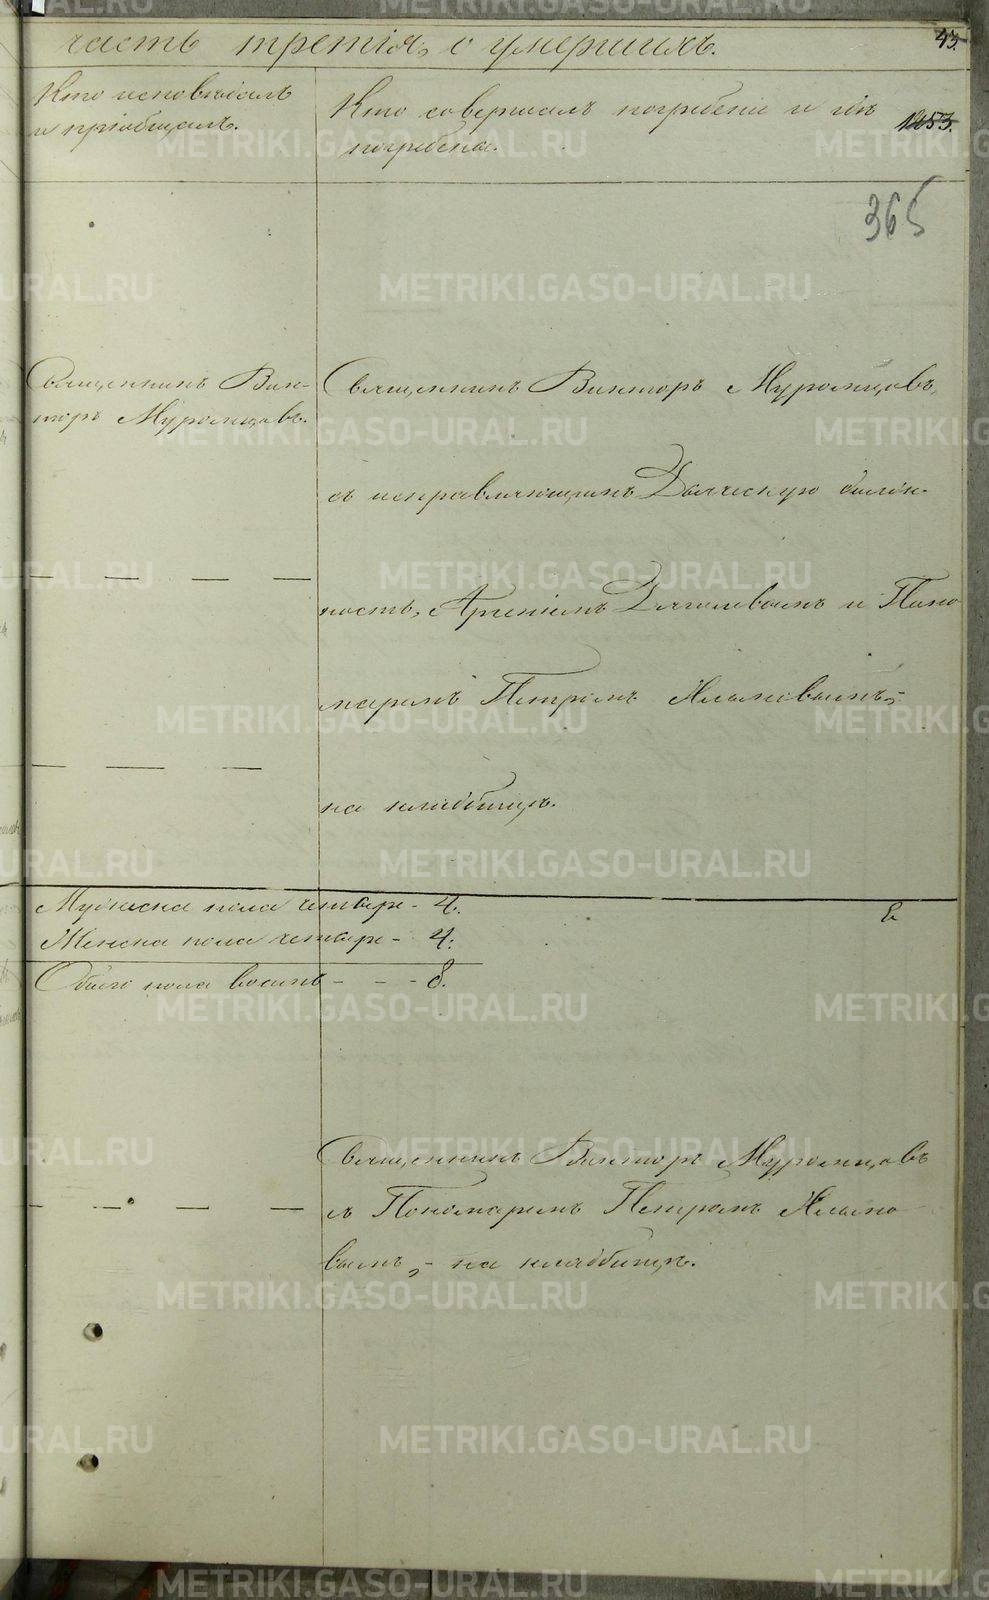 часть третія, о умершихъ.
43.
Кто исповѣдалъ
и пріобщалъ.
Кто совершалъ погребеніе и гдѣ
погребены.
1253.
365
Священникъ Вик-
торъ Муромцовъ.
Священникъ Викторъ Муромцовъ,
съ исправляющимъ Дьяческую долж-
ность, Арсеніемъ и Поно
маремъ Петромъ
на кладбищѣ.
Мужеска пола четыре - 4.
Женска пола четыре - 4.
Обоего пола восемь - - - 8.
Священникъ Викторъ Муромцовъ
съ Пономаремъ Петромъ
вымъ, - на кладбищѣ.
METRIKI.GASO-URAL.RU